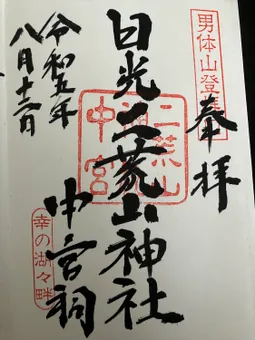 男体山登拝
奉拝
日光二荒山神社
中宮祠
二荒山
中宮
幸の湖々畔
令和五年
八月十六日